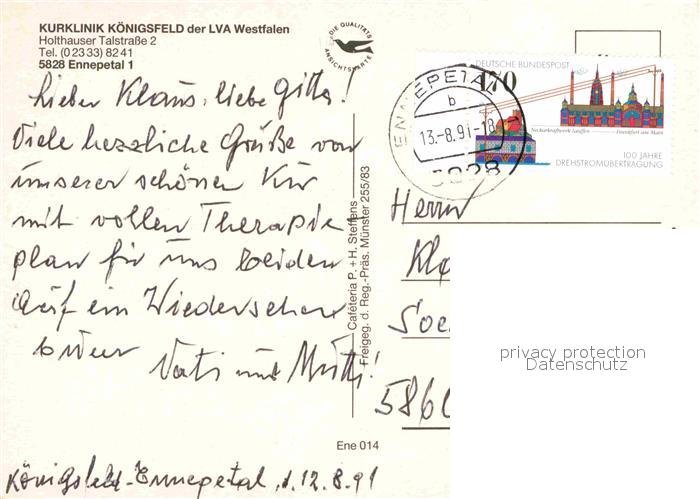 KURKLINIK KÖNIGSFELD der LVA Westfalen
Holthauser Talstraße 2
Tel. (0 23 33) 82 41
5828 Ennepetal 1
DIE QUALITÄTS
ANSICHTSKARTE
Lieber Klaus, liebe Gitta!
Viele herzliche Grüße von
unserer schönen Kur
mit vollen Therapie
plan für uns beiden
Auf ein Wiedersehen
Vati und Mutti!
Königsfeld-Ennepetal, d. 12.8.91
Cafeteria P. + H. Steffens
Freigeg. d. Reg.-Präs. Münster 255/83
Ene 014
DEUTSCHE BUNDESPOST
170
Neckarkraftwerk Lauffen — Frankfurt am Main
100 JAHRE
DREHSTROMÜBERTRAGUNG
ENNEPETAL
b
13.-8.91-18
5828
Herrn
Kl
Soe
586
privacy protection
Datenschutz